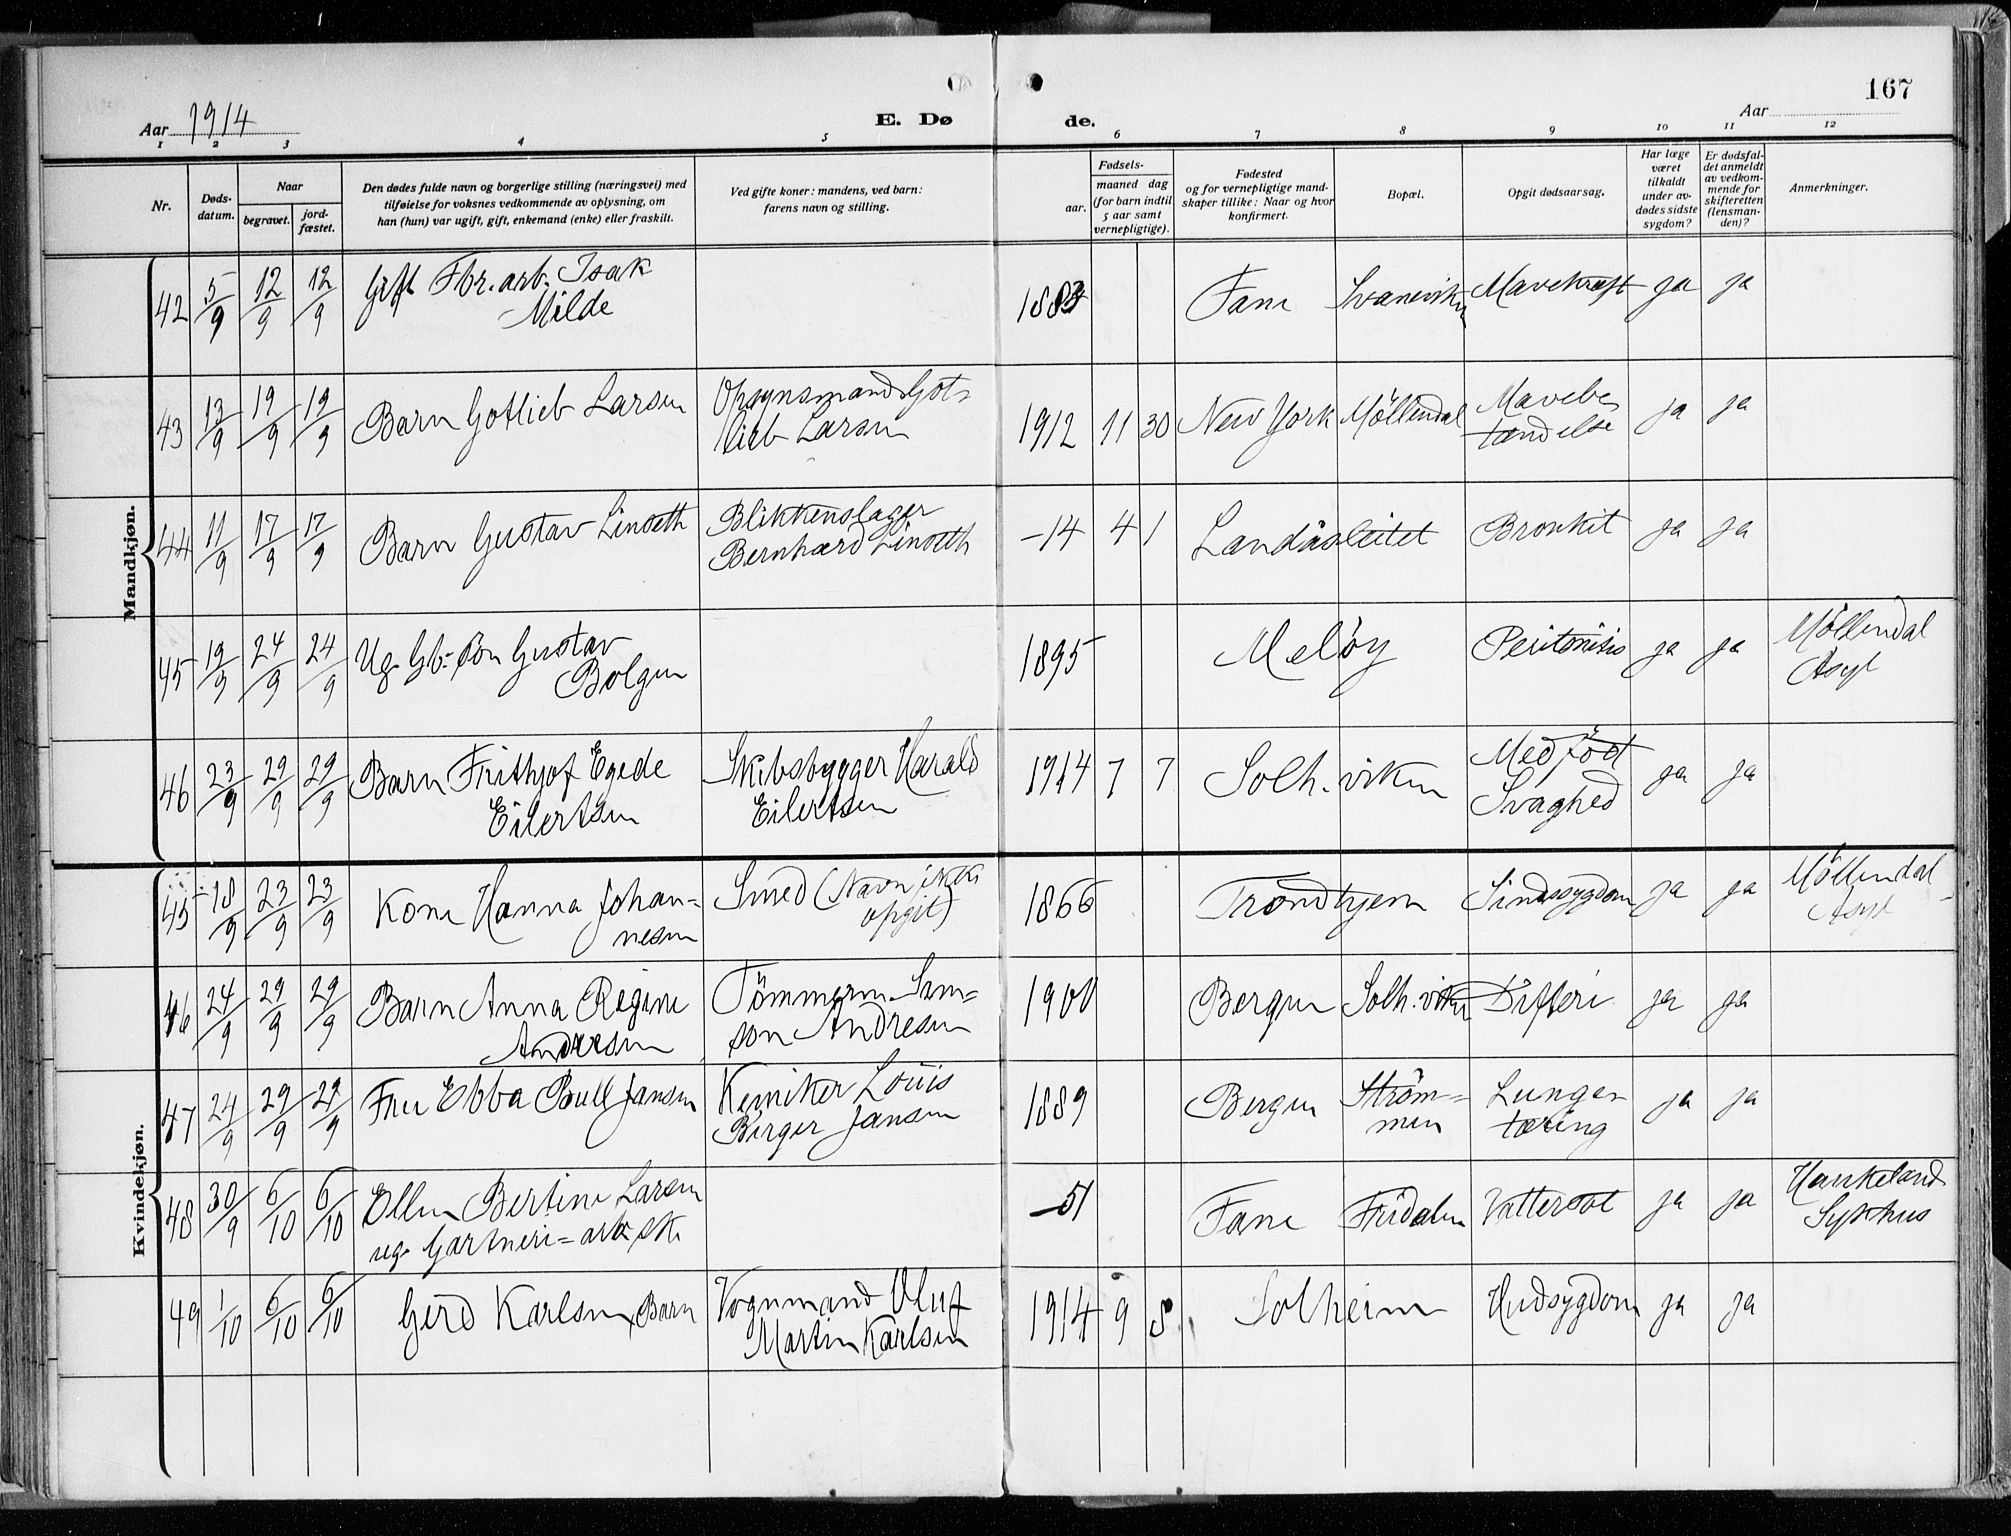 167
Aar 1914
E. Dø de.
Aar
1 2 3 4 5 6 7 8 9 10 11 12
Nr.
Døds-
datum.
Naar
begravet.
jord-
fæstet.
Den dødes fulde navn og borgerlige stilling (næringsvei) med
tilføielse for voksnes vedkommende av oplysning, om
han (hun) var ugift, gift, enkemand (enke) eller fraskilt.
Ved gifte koner: mandens, ved barn:
farens navn og stilling.
Fødsels-
aar.
maaned dag
(for barn indtil
5 aar samt
vernepligtige).
Fødested
og for vernepligtige mand-
skaper tillike: Naar og hvor
konfirmert.
Bopæl.
Opgit dødsaarsag.
Har læge
været
tilkaldt
under av-
dødes sidste
sygdom?
Er dødsfal-
det anmeldt
av vedkom-
mende for
skifteretten
(lensman-
den)?
Anmerkninger.
Mandkjøn.
42 5/9 12/9 12/9 Gift Fbr. arb. Isak 1883 Fane Mavekræft ja ja
Milde
43 13/9 19/9 19/9 Barn Gotlieb Larsen Opsynsmand Got- 1912 11 30 New York Möllendal Mavebe- ja ja
lieb Larsen tændelse
44 11/9 17/9 17/9 Barn Gustav Lindseth Blikkenslager -14 4 1 Landåsleitet Bronkit ja ja
Bernhard Lindseth
45 19/9 24/9 24/9 Ug. Gb. sön Gustav 1895 Melöy Peritonitis ja ja Möllendal
Bolgen Asyl
46 23/9 29/9 29/9 Barn Frithjof Egede Skibsbygger Harald 1914 7 7 Solh. viken Medfödt ja ja
Eilertsen Eilertsen Svaghed
Kvindekjøn.
45 18/9 23/9 23/9 Kone Hanna Johan- Smed (Navn ikke 1866 Trondhjem Sindssygdom ja ja Möllendal
nesen opgit) Asyl
46 24/9 29/9 29/9 Barn Anna Regine Tömmerm. Sam- 1900 Bergen Solh. viken Difteri ja ja
Andresen son Andresen
47 24/9 29/9 29/9 Fru Ebba Bull Jansen Kemiker Louis 1889 Bergen Ström- Lunge- ja ja
Birger Jansen men tæring
48 30/9 6/10 6/10 Ellen Bertine Larsen -51 Fane Fridalen Vattersot ja ja Haukeland
ug. Gartneri-arb.ske Sykhus
49 1/10 6/10 6/10 Gerd Karlsen, Barn Vognmand Oluf 1914 9 8 Solheim Hudsygdom ja ja
Martin Karlsen